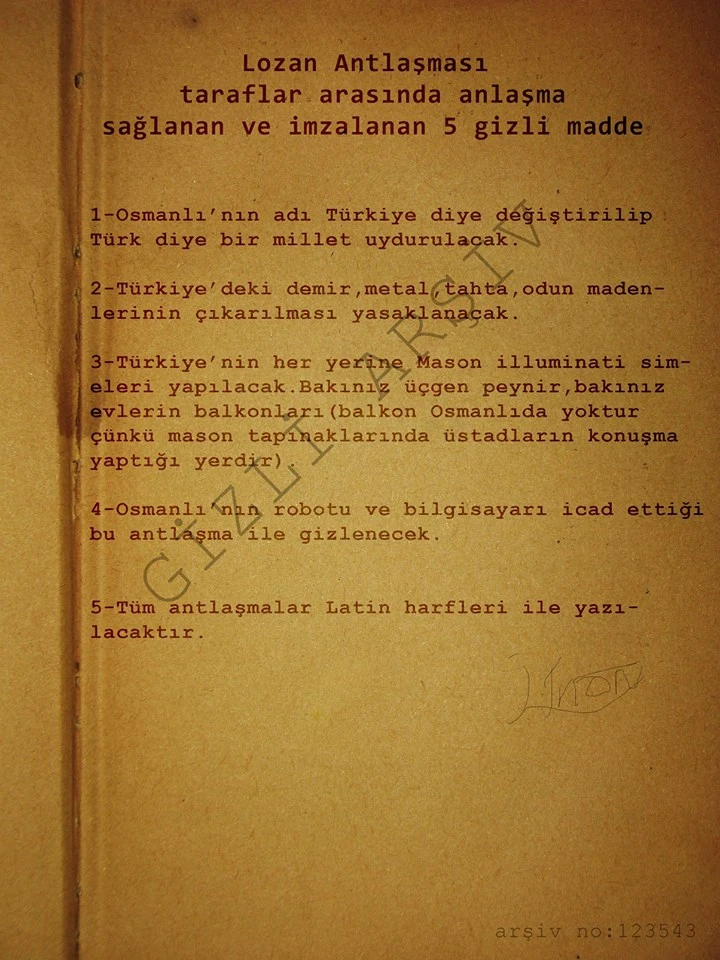 Lozan Antlaşması
taraflar arasında anlaşma
sağlanan ve imzalanan 5 gizli madde
1-Osmanlı’nın adı Türkiye diye değiştirilip
Türk diye bir millet uydurulacak.
2-Türkiye’deki demir,metal,tahta,odun maden-
lerinin çıkarılması yasaklanacak.
3-Türkiye’nin her yerine Mason illuminati sim-
eleri yapılacak.Bakınız üçgen peynir,bakınız
evlerin balkonları(balkon Osmanlıda yoktur
çünkü mason tapınaklarında üstadların konuşma
yaptığı yerdir).
4-Osmanlı’nın robotu ve bilgisayarı icad ettiği
bu antlaşma ile gizlenecek.
5-Tüm antlaşmalar Latin harfleri ile yazı-
lacaktır.
GİZLİ ARŞIV
arşiv no:123543